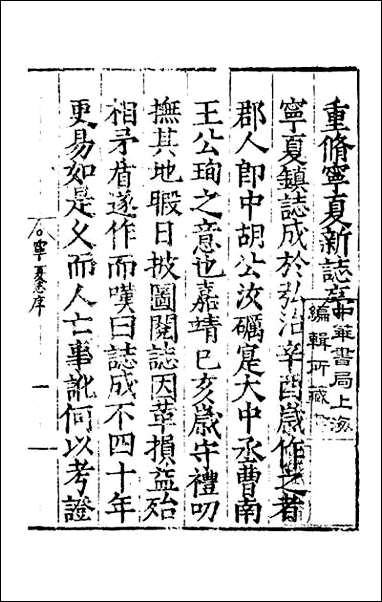 重脩寧夏新誌序
寧夏鎮誌成於弘治辛酉歲作之者
郡人郎中胡公汝礪寔大中丞曹南
王公珣之意也嘉靖己亥歲守禮叨
撫其地暇日披圖閱誌因革損益殆
相矛盾遂作而嘆曰誌成不四十年
更易如是久而人亡事訛何以考證
寧夏志序
一
中華書局上海
編輯所藏